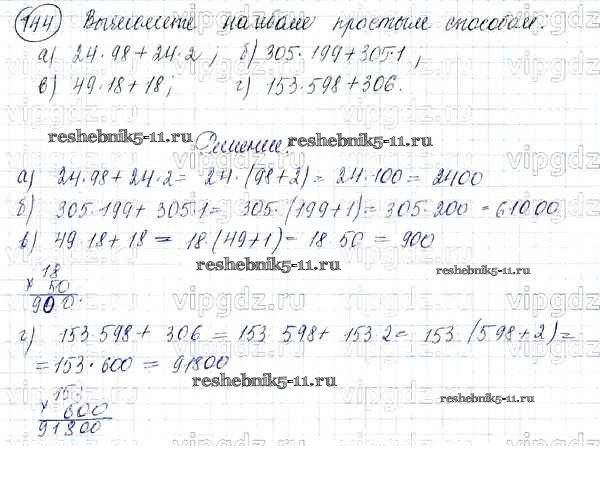 144) Вычислите наиболее простым способом:
а) 24·98+24·2; б) 305·199+305·1;
в) 49·18+18; г) 153·598+306.
reshebnik5-11.ru Решение. reshebnik5-11.ru
а) 24·98+24·2= 24·(98+2)= 24·100= 2400
б) 305·199+305·1= 305·(199+1)= 305·200 = 61000
в) 49·18+18 = 18·(49+1)= 18·50 = 900
reshebnik5-11.ru reshebnik5-11.ru
18
× 50
900.
г) 153·598+ 306 = 153·598+ 153·2= 153·(598+2)=
= 153·600 = 91800
reshebnik5-11.ru
153
× 600
91800
reshebnik5-11.ru
vipgdz.ru